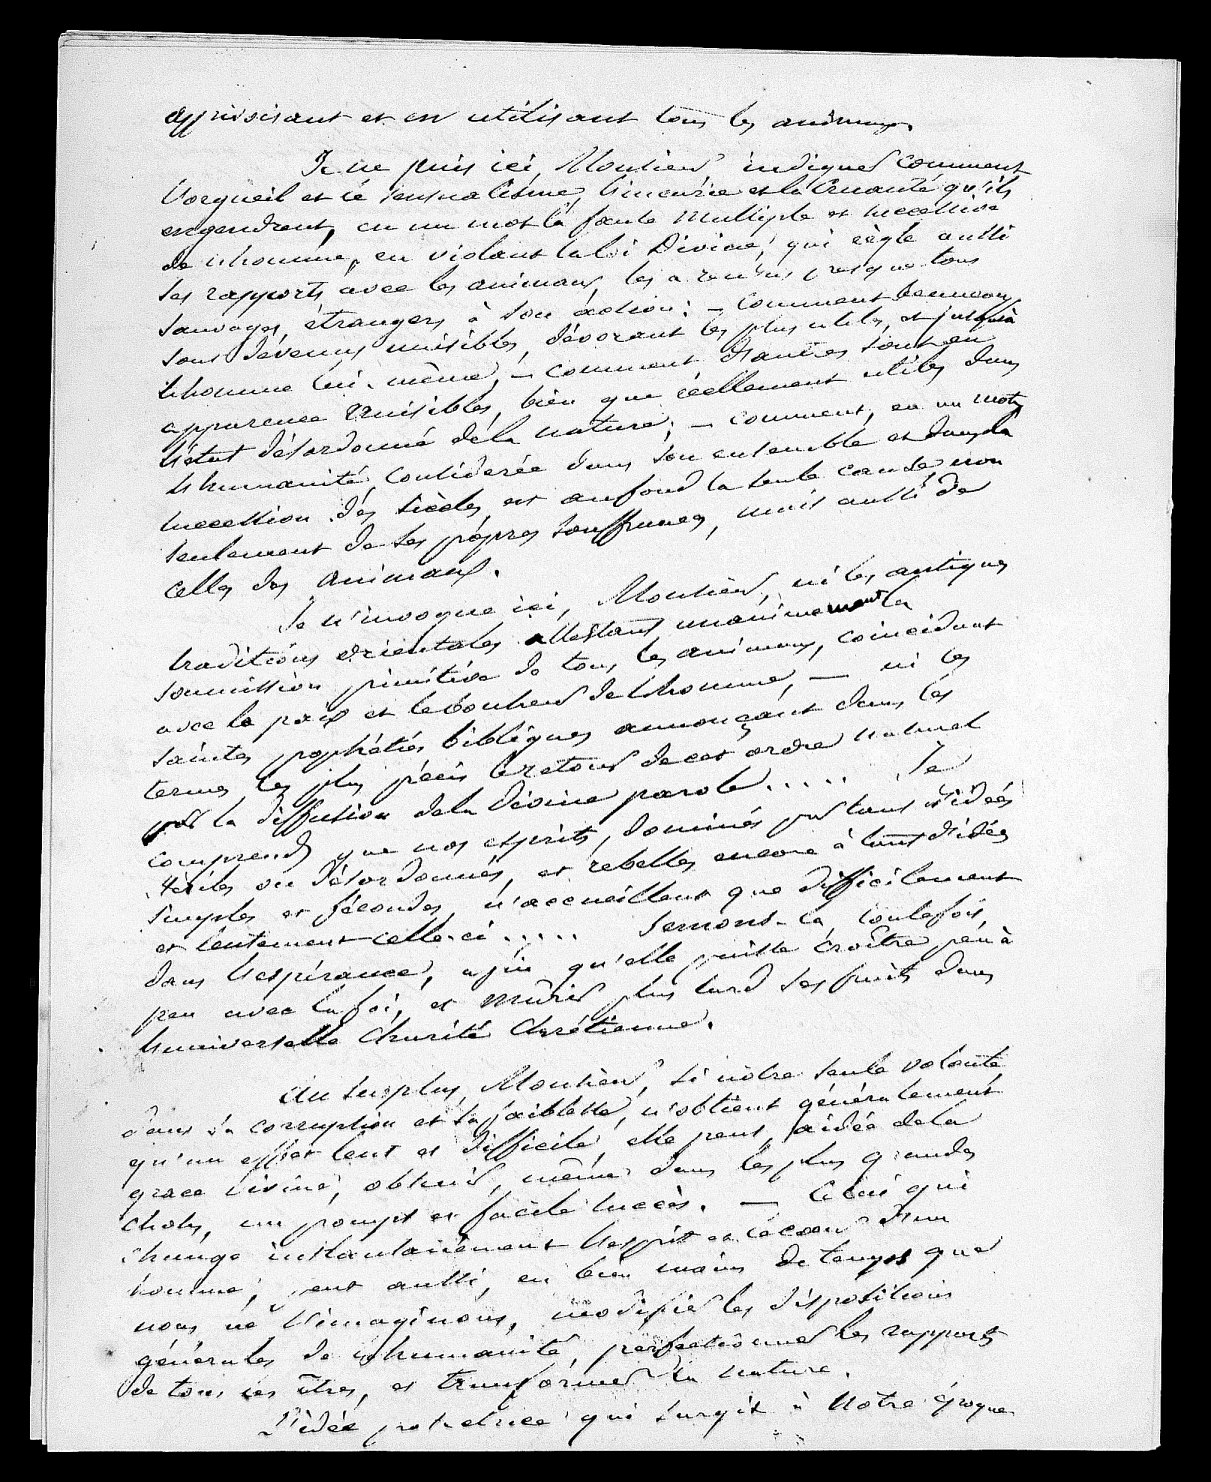 apprivoisant et en utilisant tous les animaux.
Je ne puis ici, Monsieur indiquer comment
l'orgueil et le sensualisme, l'incurie et la cruauté qu'ils
engendrent, en un mot la faute multiple et successive
de l'homme, en violant la loi Divine, qui règle aussi
ses rapports avec les animaux, les a rendus presque tous
sauvages, étrangers à son action; – comment beaucoup
sont devenus nuisibles, dévorant les plus utiles, et jusqu'à
l'homme lui-même, – comment d'autres sont en
apparence nuisibles, bien que réellement utiles dans
l'état désordonné de la nature; – comment, en un mot,
l'humanité, considérée dans son ensemble et dans la
succession des siècles, est au fond la seule cause non
seulement de ses propres souffrances, mais aussi de
celles des animaux.
Je n'invoque ici, Monsieur, ni les antiques
traditions orientales attestant unanimement la
soumission primitive de tous les animaux, coincidant
avec la paix et le bonheur de l'homme, — ni les
saintes prophéties bibliques annonçant dans les
termes les plus précis le retour de cet ordre naturel
par la diffusion de la Divine parole.... Je
comprends que nos esprits, dominés par tant d'idées
stériles ou désordonnées, et rebelles encore à tant d'idées
simples et fécondes, n'accueillent que difficilement
et lentement celle-ci..... Semons-la, toutefois,
dans l'espérance, afin qu'elle puisse croître peu à
peu avec la foi, et mûrir plus tard ses fruits dans
l'universelle Charité Chrétienne.
Au surplus, Monsieur, si notre seule volonté
dans sa corruption et sa faiblesse, n'obtient généralement
qu'un effet lent et difficile, elle peut, aidée de la
grace divine, obtenir, même dans les plus grandes
choses, un prompt et facile succès. — Celui qui
change instantanément l'esprit et le coeur d'un
homme, peut aussi, en bien moins de temps que
nous ne l'imaginons, modifier les dispositions
générales de l'humanité, perfectionner les rapports
de tous les êtres, et transformer la nature.
L'idée protectrice qui surgit à notre époque